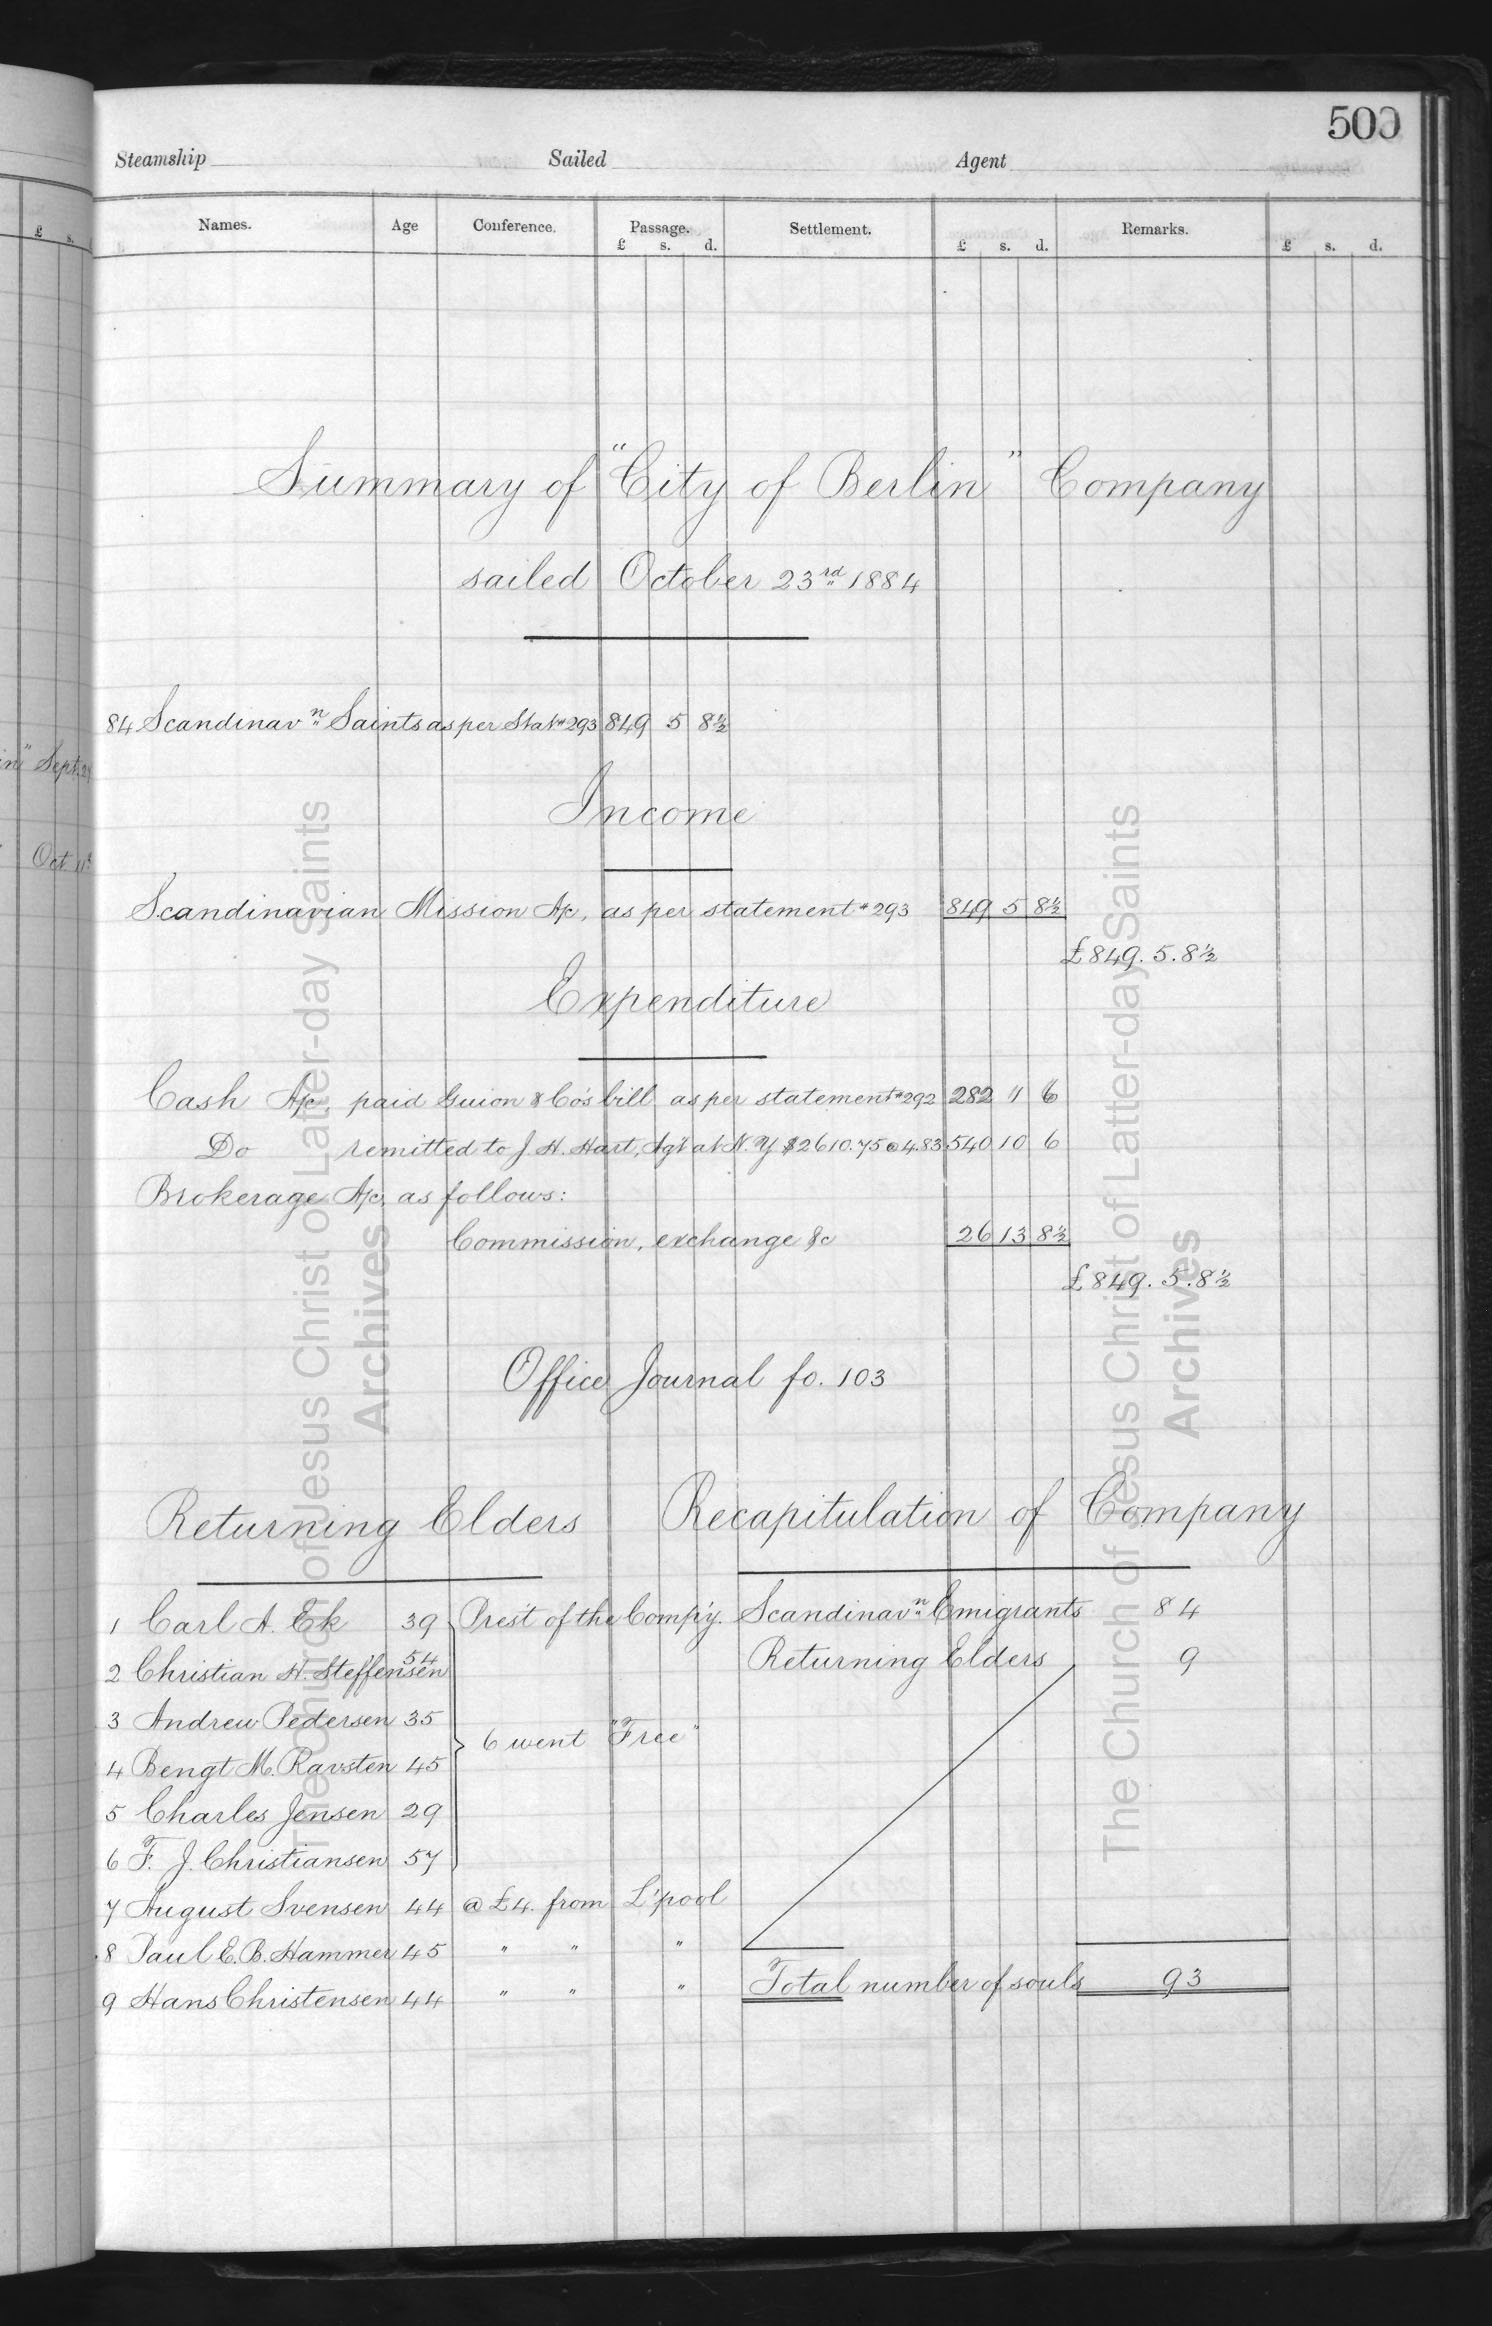 500
Steamship Sailed Agent
Names. Age Conference. Passage. Settlement. Remarks.
£ s. £ s. d. £ s. d. £ s. d.
Summary of "City of Berlin" Company
sailed October 23rd 1884
84 Scandinavn Saints as per Stat # 293 849 5 8½
" Sept. 24
Income
Oct. 11
Scandinavian Mission A/c, as per statement # 293 849 5 8½
£849. 5. 8½
Expenditure
Cash A/c, paid Guion & Co's bill as per statement # 292 282 1 6
Do remitted to J. H. Hart, Ag't at N. Y. $2610.75 @ 4.83 540 10 6
Brokerage A/c, as follows:
Commission, exchange &c 26 13 8½
£849. 5. 8½
Office Journal fo. 103
Returning Elders Recapitulation of Company
1 Carl A. Ek 39 Pres't of the Comp'y. Scandinavn Emigrants 84
2 Christian H. Steffensen 54 Returning Elders 9
3 Andrew Pedersen 35
6 went "Free"
4 Bengt M. Ravsten 45
5 Charles Jensen 29
6 F. J. Christiansen 57
7 August Svensen 44 @ £4. from L'pool
8 Paul E. B. Hammer 45 " " "
9 Hans Christensen 44 " " " Total number of souls 93
The Church of Jesus Christ of Latter-day Saints
Archives
The Church of Jesus Christ of Latter-day Saints
Archives